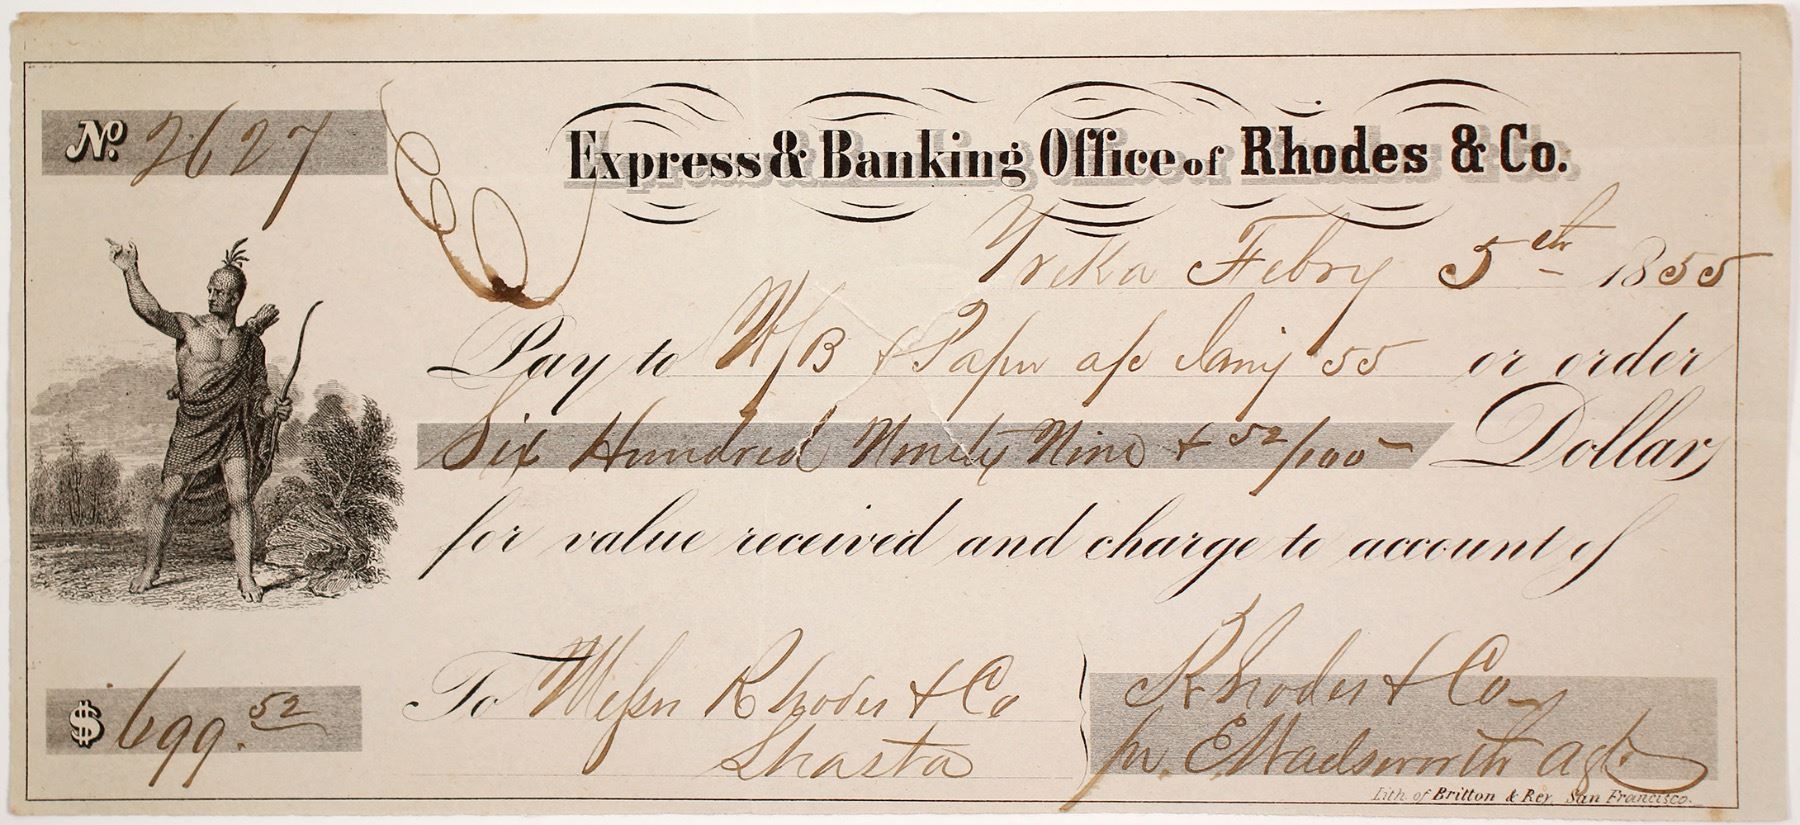 No. 2627
Express & Banking Office of Rhodes & Co.
Yreka Febry 5th 1855
Pay to W/B & 55 or order
Six Hundred Ninety Nine & 52/100 Dollars
for value received and charge to account of
To Messrs Rhodes & Co
Shasta
Rhodes & Co
pr. E. Wadsworth agt.
$ 699.52
Lith. of Britton & Rey, San Francisco.